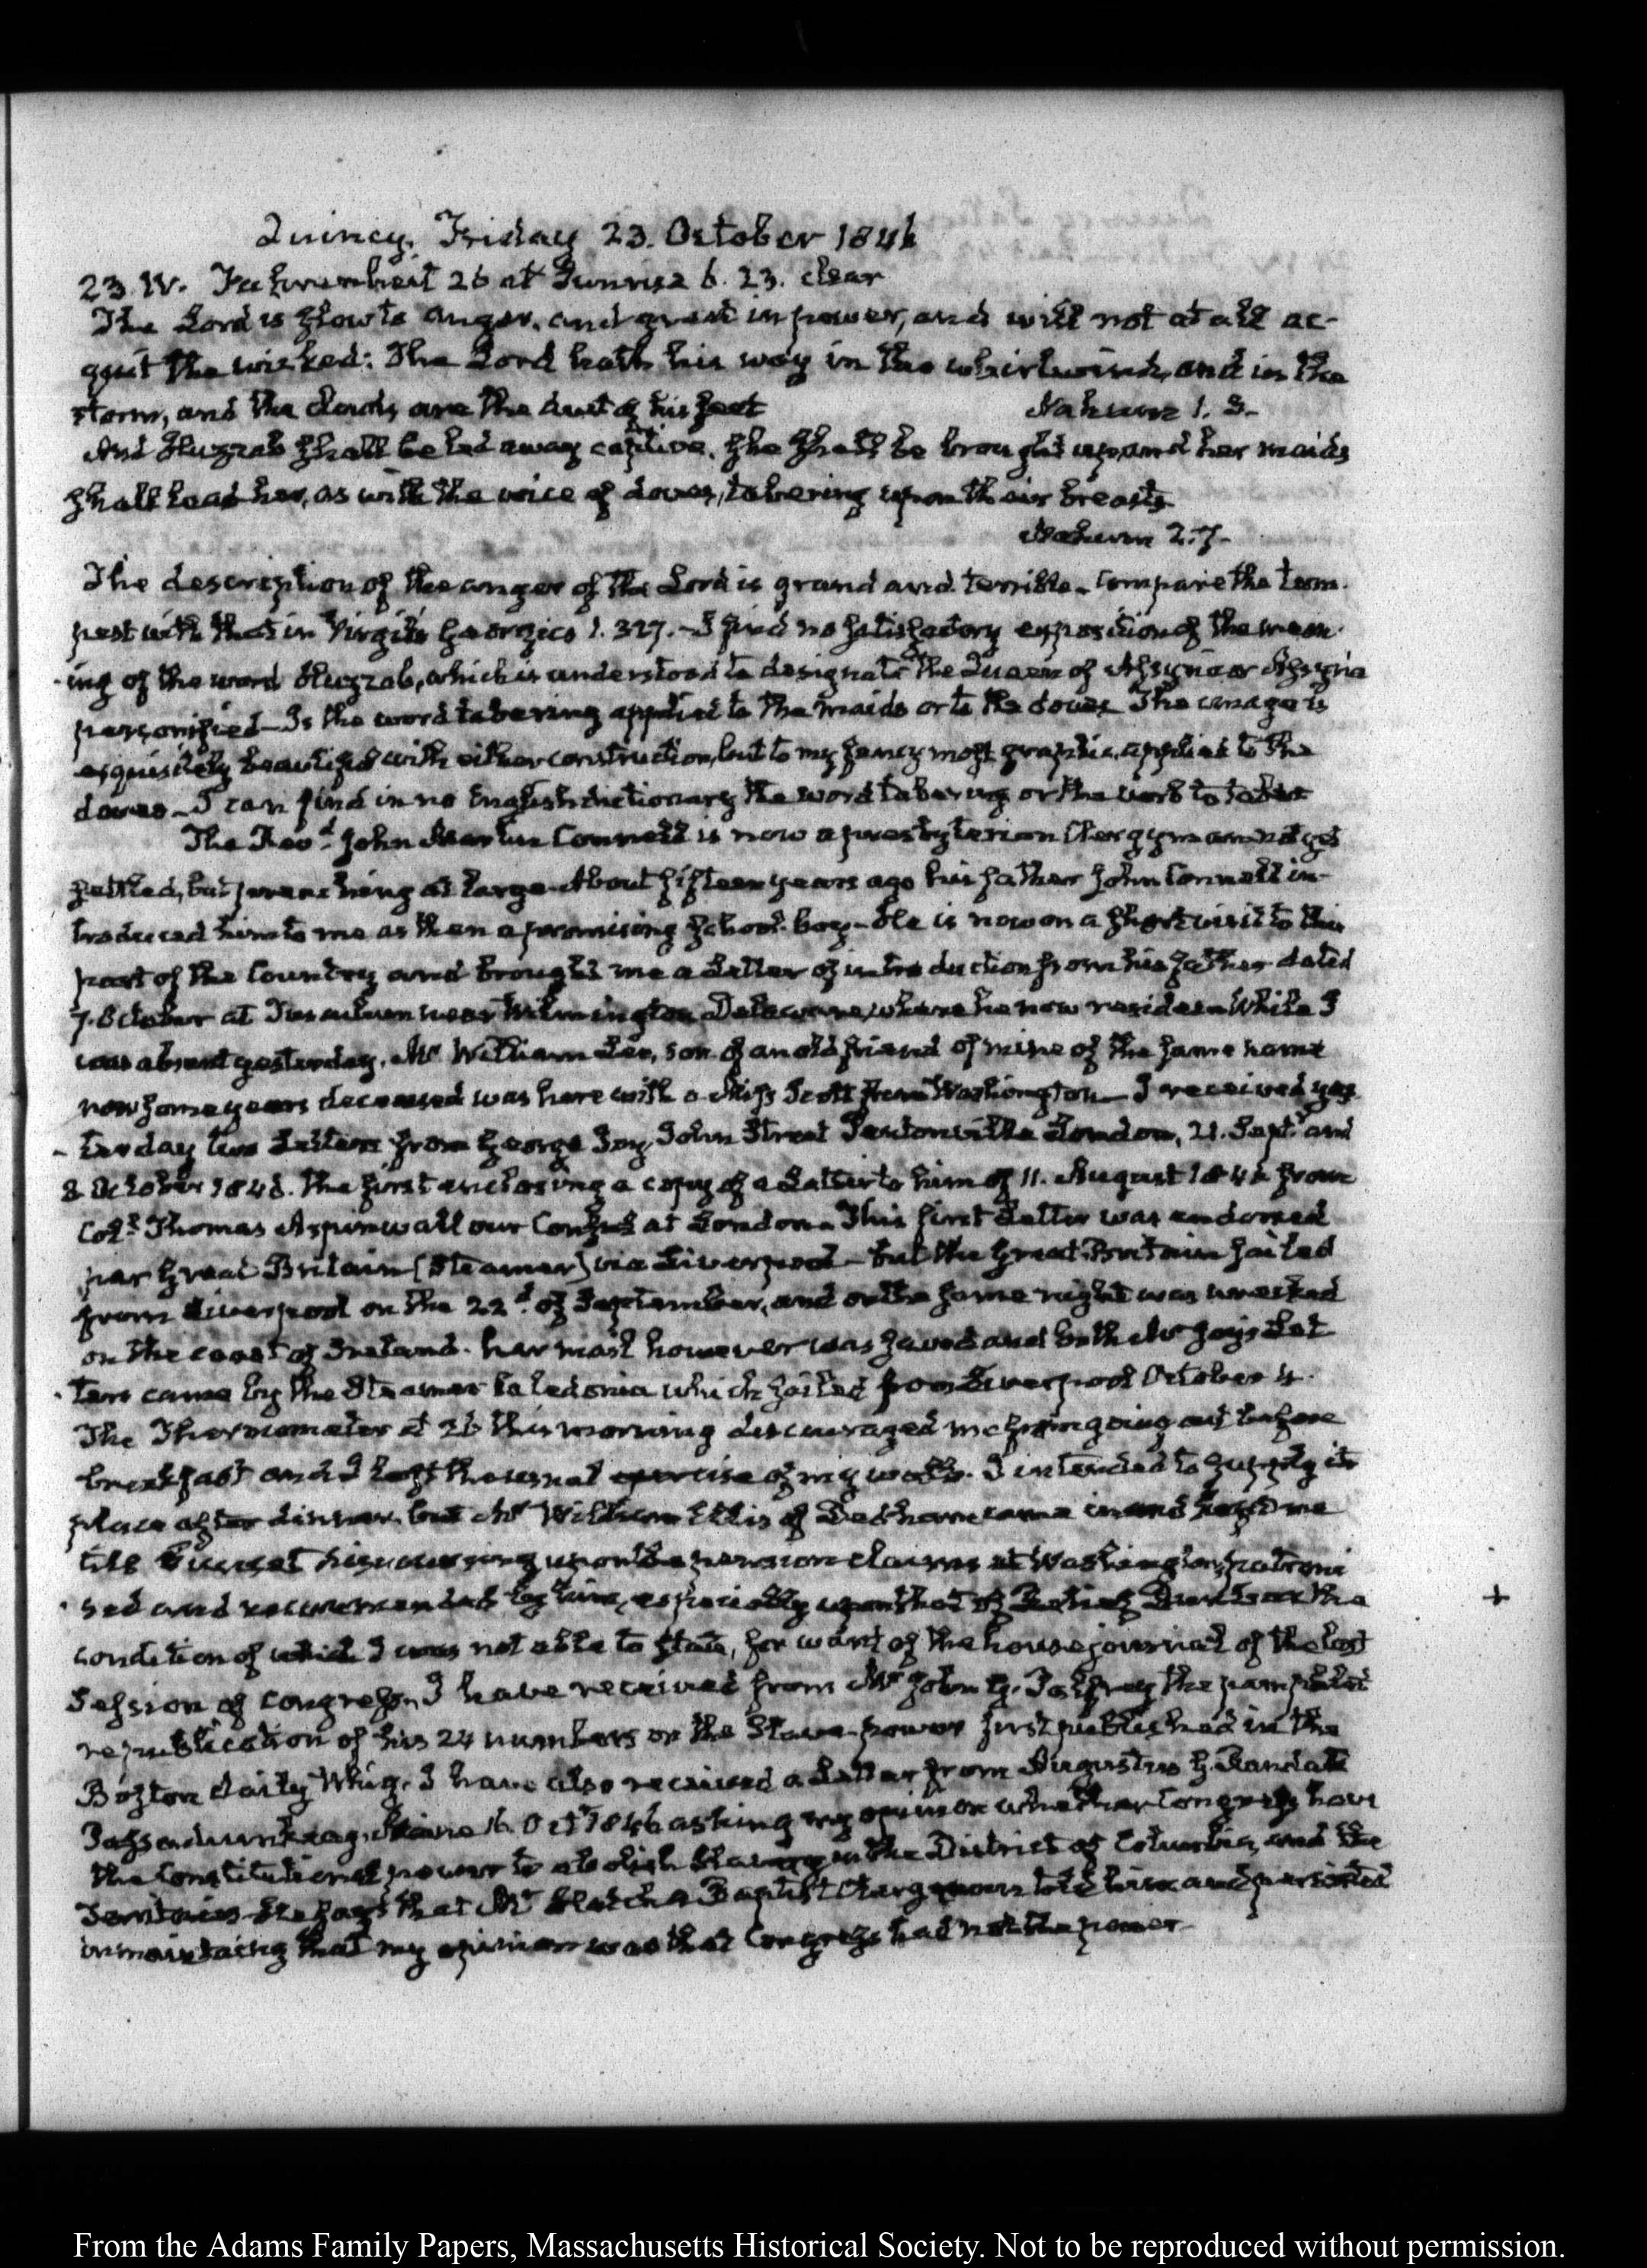 Quincy. Friday 23. October 1846
23. IV. Fahrenheit 26 at Sunrise 6. 23. clear
The Lord is slow to anger, and great in power, and will not at all ac-
quit the wicked: The Lord hath his way in the whirlwind, and in the
storm, and the clouds are the dust of his feet Nahum 1. 3.
And Huzzab shall be led away captive, she shall be brought up, and her maids
shall lead her, as with the voice of doves, tabering upon their breasts
Nahum 2. 7.
The description of the anger of the Lord is grand and terrible. Compare the tem-
pest with that in Virgil's Georgics 1. 327. — I find no satisfactory exposition of the mean-
-ing of the word Huzzab, which is understood to designate the Queen of Assyria or Assyria
personified — Is the word tabering applied to the maids or to the doves The image is
exquisitely beautiful with either construction, but to my fancy most graphic, applied to the
doves — I can find in no English dictionary the word tabering or the verb to taber
The Revd. John Martin Connell is now a presbyterian Clergyman not yet
settled, but preaching at large. About fifteen years ago his father John Connell in-
troduced him to me as then a promising school-boy — He is now on a short visit to this
part of the Country and brought me a Letter of introduction from his father dated
7. October at near Wilmington Delaware, where he now resides — While I
was absent yesterday, Mr William Lee, son of an old friend of mine of the same name
now some years deceased was here with a Miss Scott from Washington — I received yes-
-terday two Letters from George Joy, John Street Pentonville London, 21. Septr. and
2 October 1846. The first enclosing a copy of a Letter to him of 11. August 1846 from
Coll. Thomas Aspinwall our Consul at London. This first Letter was endorsed
per Great Britain (Steamer) via Liverpool — but the Great Britain sailed
from Liverpool on the 22d. of September, and on the same night was wrecked
on the coast of Ireland. her mail however was saved and both Mr Joy's Let-
-ters came by the Steamer Caledonia which sailed from Liverpool October 4.
The Thermometer at 26 this morning discouraged me from going out before
breakfast and I lost the usual exercise of my walk. I intended to supply its
place after dinner, but Mr William Ellis of Dedham came in and kept me
till Sunset discoursing upon the pension claims at Washington, patroni-
-sed and recommended by him, especially upon that of the
condition of which I was not able to state, for want of the house journal of the last
Session of Congress. I have received from Mr John G. Palfrey the pamphlet
republication of his 24 numbers on the Slave-power first published in the
Boston daily Whig. I have also received a Letter from Augustus Randall
Passadumkeag, Maine 16. Octr. 1846 asking my opinion whether Congress have
the Constitutional power to abolish Slavery in the District of Columbia, and the
Territories — He says that Mr Hatch a Baptist Clergyman told him and persisted
in maintaining that my opinion was that Congress had not the power
+
From the Adams Family Papers, Massachusetts Historical Society. Not to be reproduced without permission.